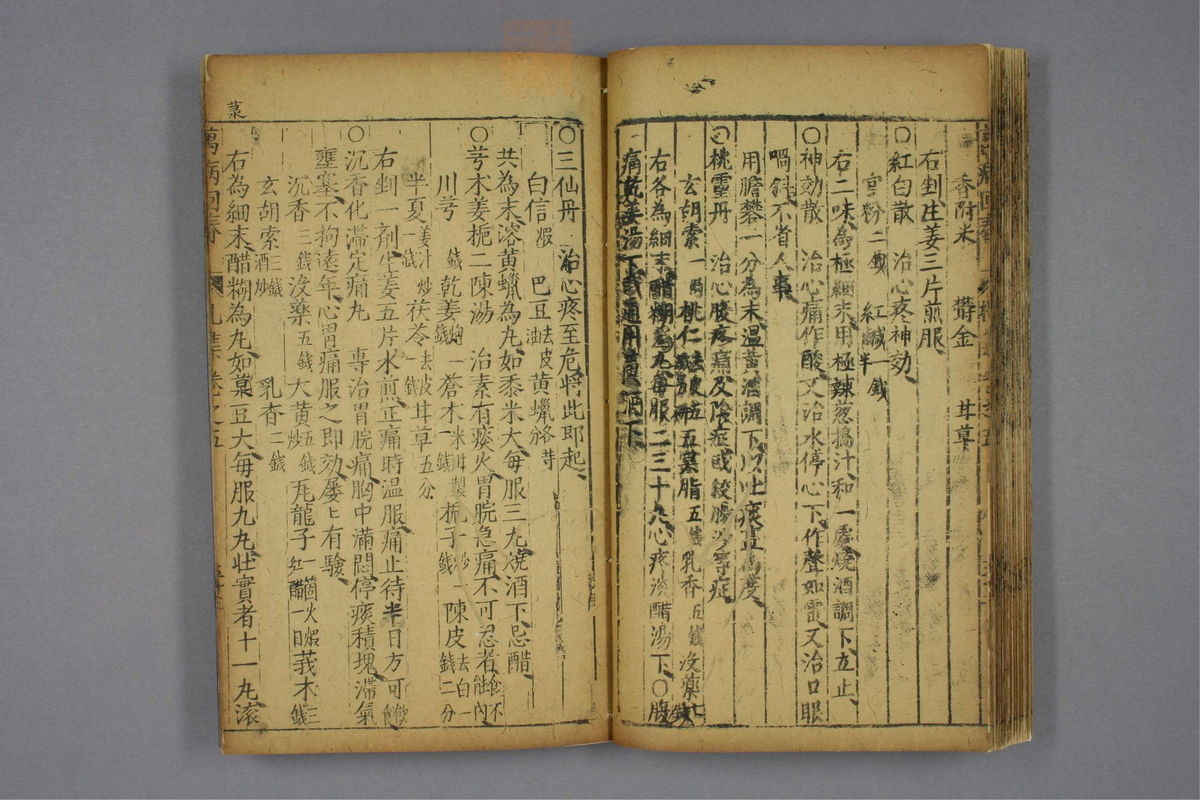 香附米 欝金 甘草
右剉生姜三片煎服
〇紅白散 治心疼神効
官粉二錢 紅鹹一錢半
右二味為極細末用極辣葱搗汁和一處燒酒調下立止
〇神効散 治心痛作酸又治水停心下作聲如雷又治口眼
喎斜不省人事
用膽礬一分為末温黃酒調下以吐痰盡為度
〇桃靈丹 治心腹疼痛及陰症或絞腸沙等症
玄胡索一兩 桃仁去皮五 五靈脂五錢 乳香五錢 沒藥七錢
右各為細末醋糊為丸每服二三十丸心疼淡醋湯下〇腹
痛乾姜湯下或通用黃酒下
〇三仙丹 治心疼至危將此即起
白信煅 巴豆去皮油 黃蠟各等分
共為末溶黃蠟為丸如黍米大每服三丸燒酒下忌醋
〇芎术姜梔二陳湯 治素有痰火胃脘急痛不可忍者
川芎錢 乾姜炮一錢 蒼术米泔製一錢 梔子炒一錢 陳皮去白一錢二分
半夏姜汁炒一錢 茯苓去皮一錢 甘草五分
右剉一劑生姜五片水煎正痛時温服痛止待半日方可飲
〇沉香化滯定痛丸 專治胃脘痛胸中滿悶停痰積塊滯氣
壅塞不拘遠年心胃痛服之即効屢上有驗
沉香三錢 沒藥五錢 大黃五錢炒 瓦龍子一箇火煅紅醋一日 莪术三錢
玄胡索三錢酒炒 乳香二錢
右為細末醋糊為丸如菉豆大每服九丸壯實者十一丸滚
萬病回春
卷之五
菉